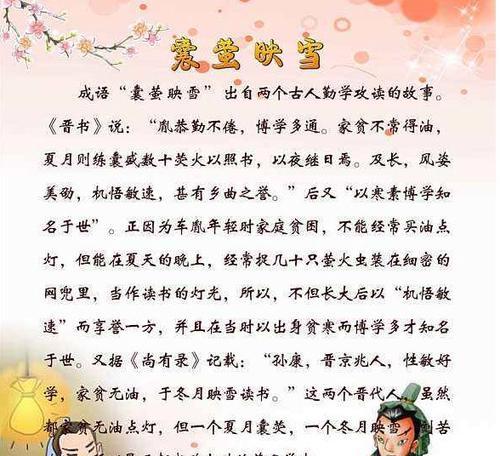 囊萤映雪
成语“囊萤映雪”出自两个古人勤学攻读的故事。
《晋书》说：“胤恭勤不倦，博学多通。家贫不常得油，
夏月则练囊盛数十荧火以照书，以夜继日焉。及长，风姿
美劭，机悟敏速，甚有乡曲之誉。”后又“以寒素博学知
名于世”。正因为车胤年轻时家庭贫困，不能经常买油点
灯，但能在夏天的晚上，经常捉几十只萤火虫装在细密的
网兜里，当作读书的灯光，所以，不但长大后以“机悟敏
速”而享誉一方，并且在当时以出身贫寒而博学多才知名
于世。又据《尚有录》记载：“孙康，晋京兆人，性敏好
学，家贫无油，于冬月映雪读书。”这两个晋代人，虽然
都家贫无油点灯，但一个夏月囊荧，一个冬月映雪，刻苦